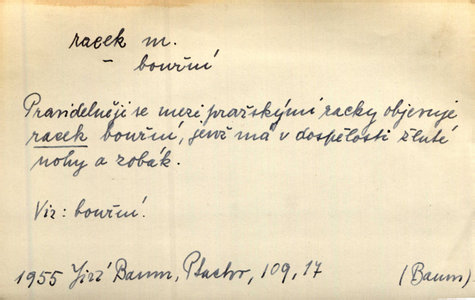 racek m.
– bouřní
Pravidelněji se mezi pražskými racky objevuje
racek bouřní, jenž má v dospělosti žluté
nohy a zobák.
Viz: bouřní.
1955 Jiří Baum, Ptactvo, 109, 17 (Baum)